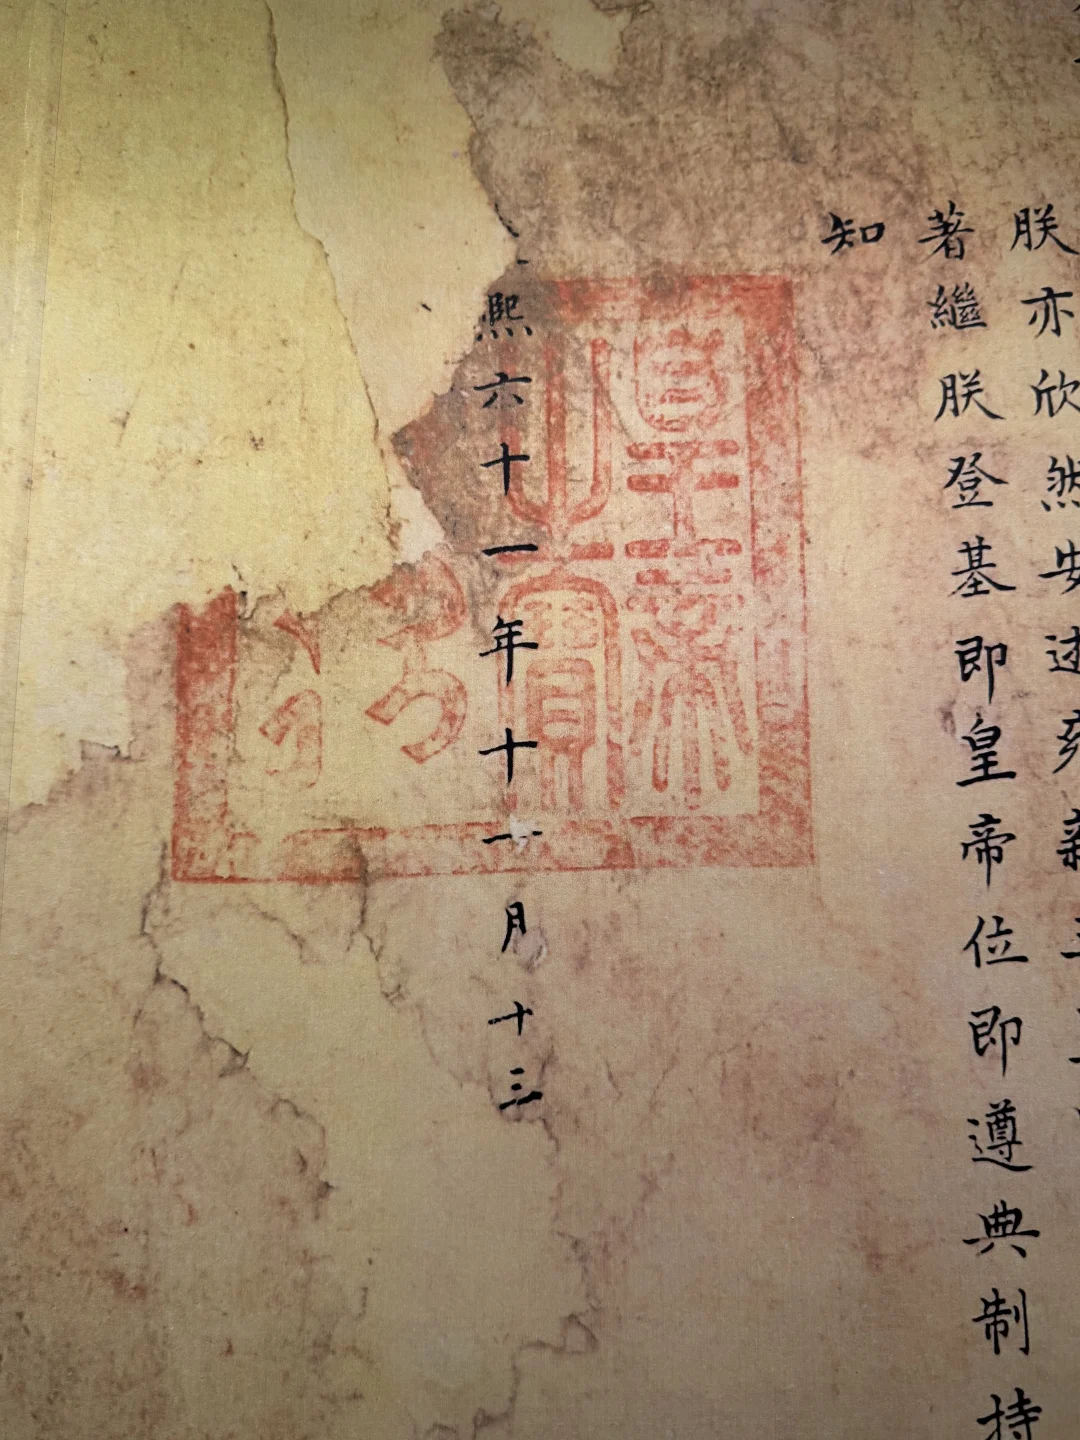 朕亦欣然安雍親王
著繼朕登基即皇帝位即遵典制持
知
熙六十一年十一月十三
皇帝
之寶